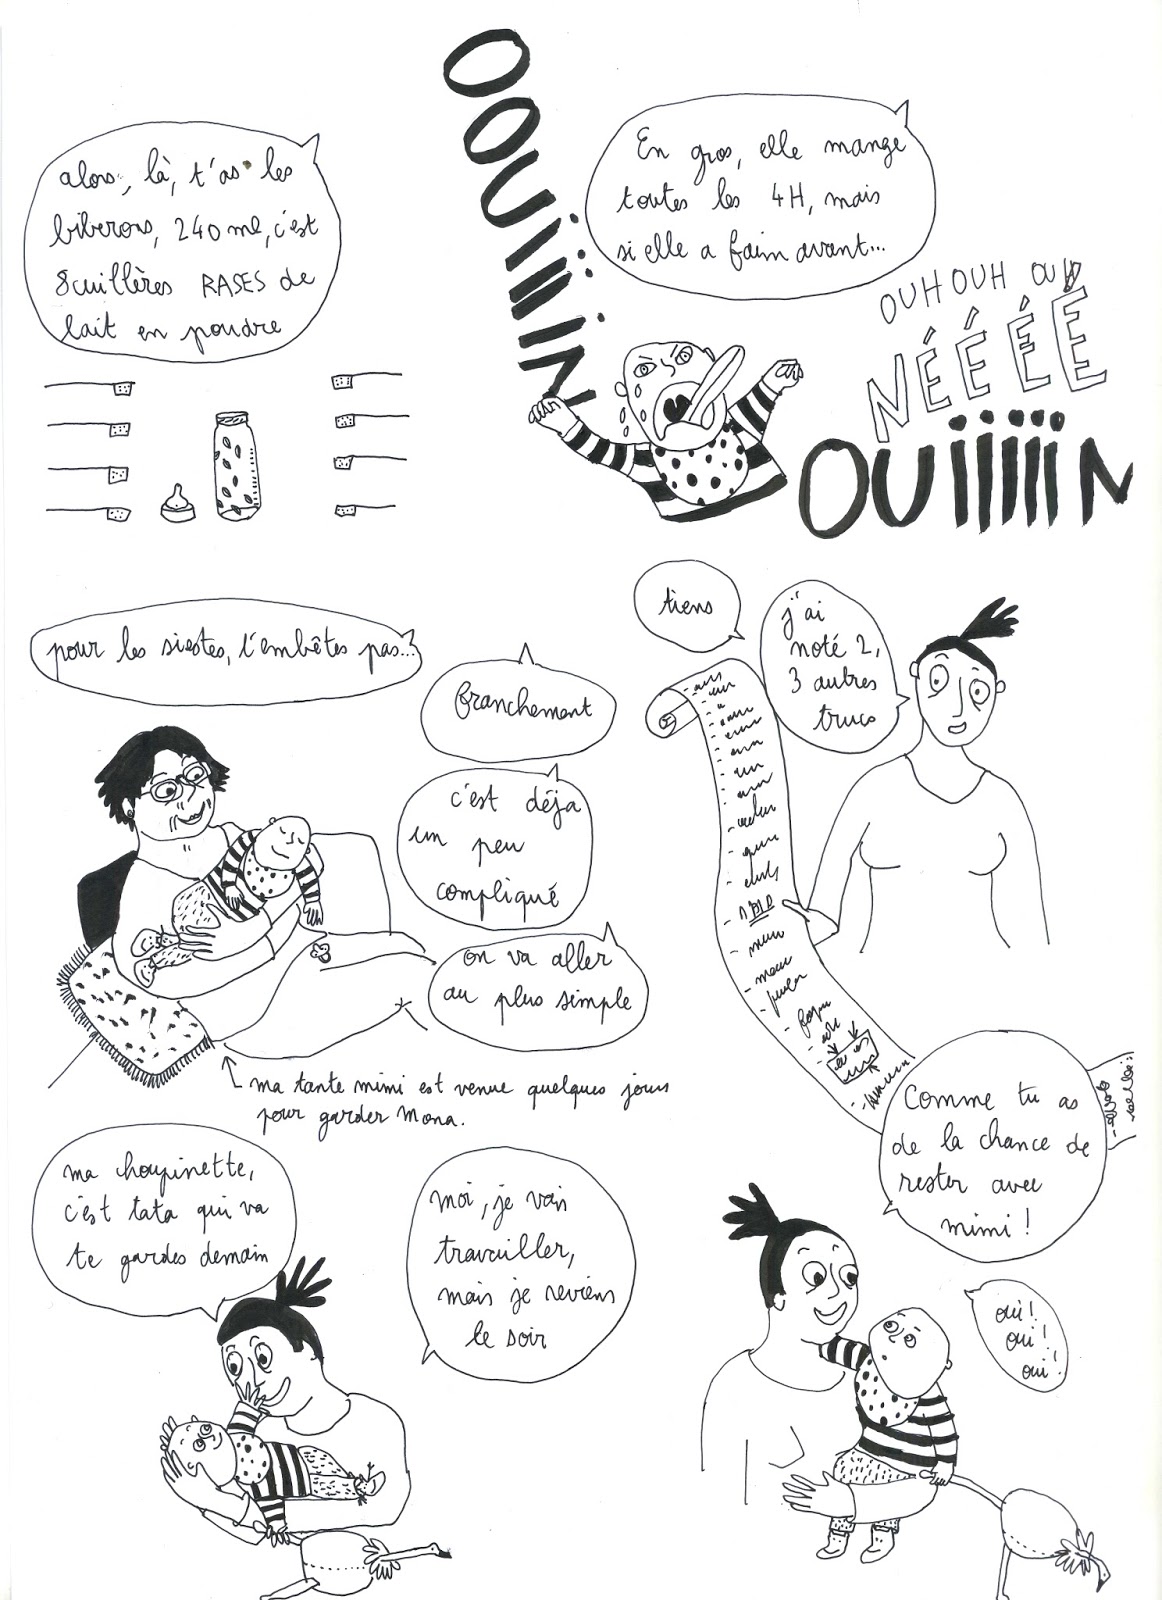 alors, là, t'as les
biberons, 240 ml, c'est
8 cuillères RASES de
lait en poudre
OOUIIIIN
En gros, elle mange
toutes les 4H, mais
si elle a faim avant...
OUH OUH OUH
NÉÉÉÉ
OUIIIIIN
pour les siestes, t'embêtes pas...
franchement
c'est déja
un peu
compliqué
on va aller
au plus simple
ma tante mimi est venue quelques jours
pour garder Mona.
tiens
j'ai
noté 2,
3 autres
trucs
ma choupinette,
c'est tata qui va
te gardes demain
moi, je vais
travailler,
mais je reviens
le soir
Comme tu as
de la chance de
rester avec
mimi !
oui !
oui !
oui !